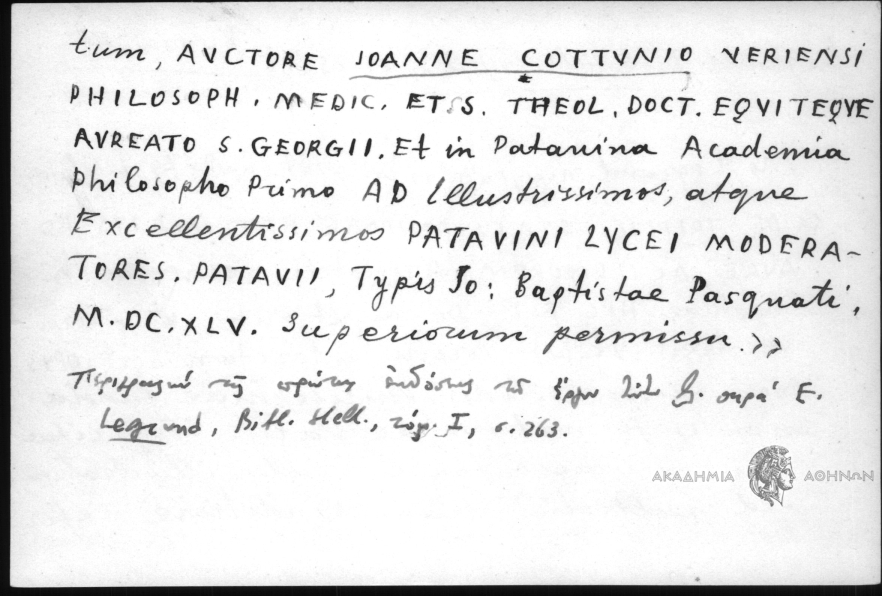 tum, AVCTORE JOANNE COTTVNIO VERIENSI
PHILOSOPH. MEDIC. ET S. THEOL. DOCT. EQVITEQVE
AVREATO S. GEORGII. Et in Patavina Academia
Philosopho Primo AD Illustrissimos, atque
Excellentissimos PATAVINI LYCEI MODERA-
TORES. PATAVII, Typis Jo: Baptistae Pasquati,
M.DC.XLV. Superiorum permissu.»
Περιγραφὴ τῆς πρώτης ἐκδόσεως τοῦ ἔργου παρὰ E.
Legrand, Bibl. Hell., τόμ. I, σ. 263.
ΑΚΑΔΗΜΙΑ ΑΘΗΝΩΝ